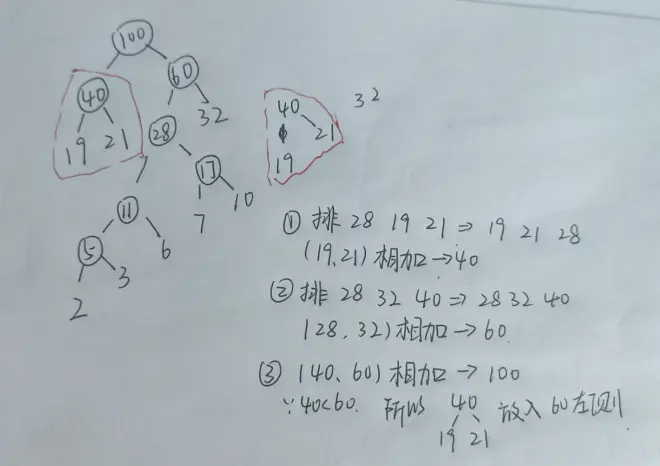 100
40 60
32
19 21 28
17
7 10
11
5 6
2 3
40
21
19
32
① 排 28 19 21 ⇒ 19 21 28
(19,21) 相加→40
② 排 28 32 40 ⇒ 28 32 40
(28,32) 相加→60
③ (40、60) 相加→100
∵40<60. 所以 40 放入 60左侧
19 21